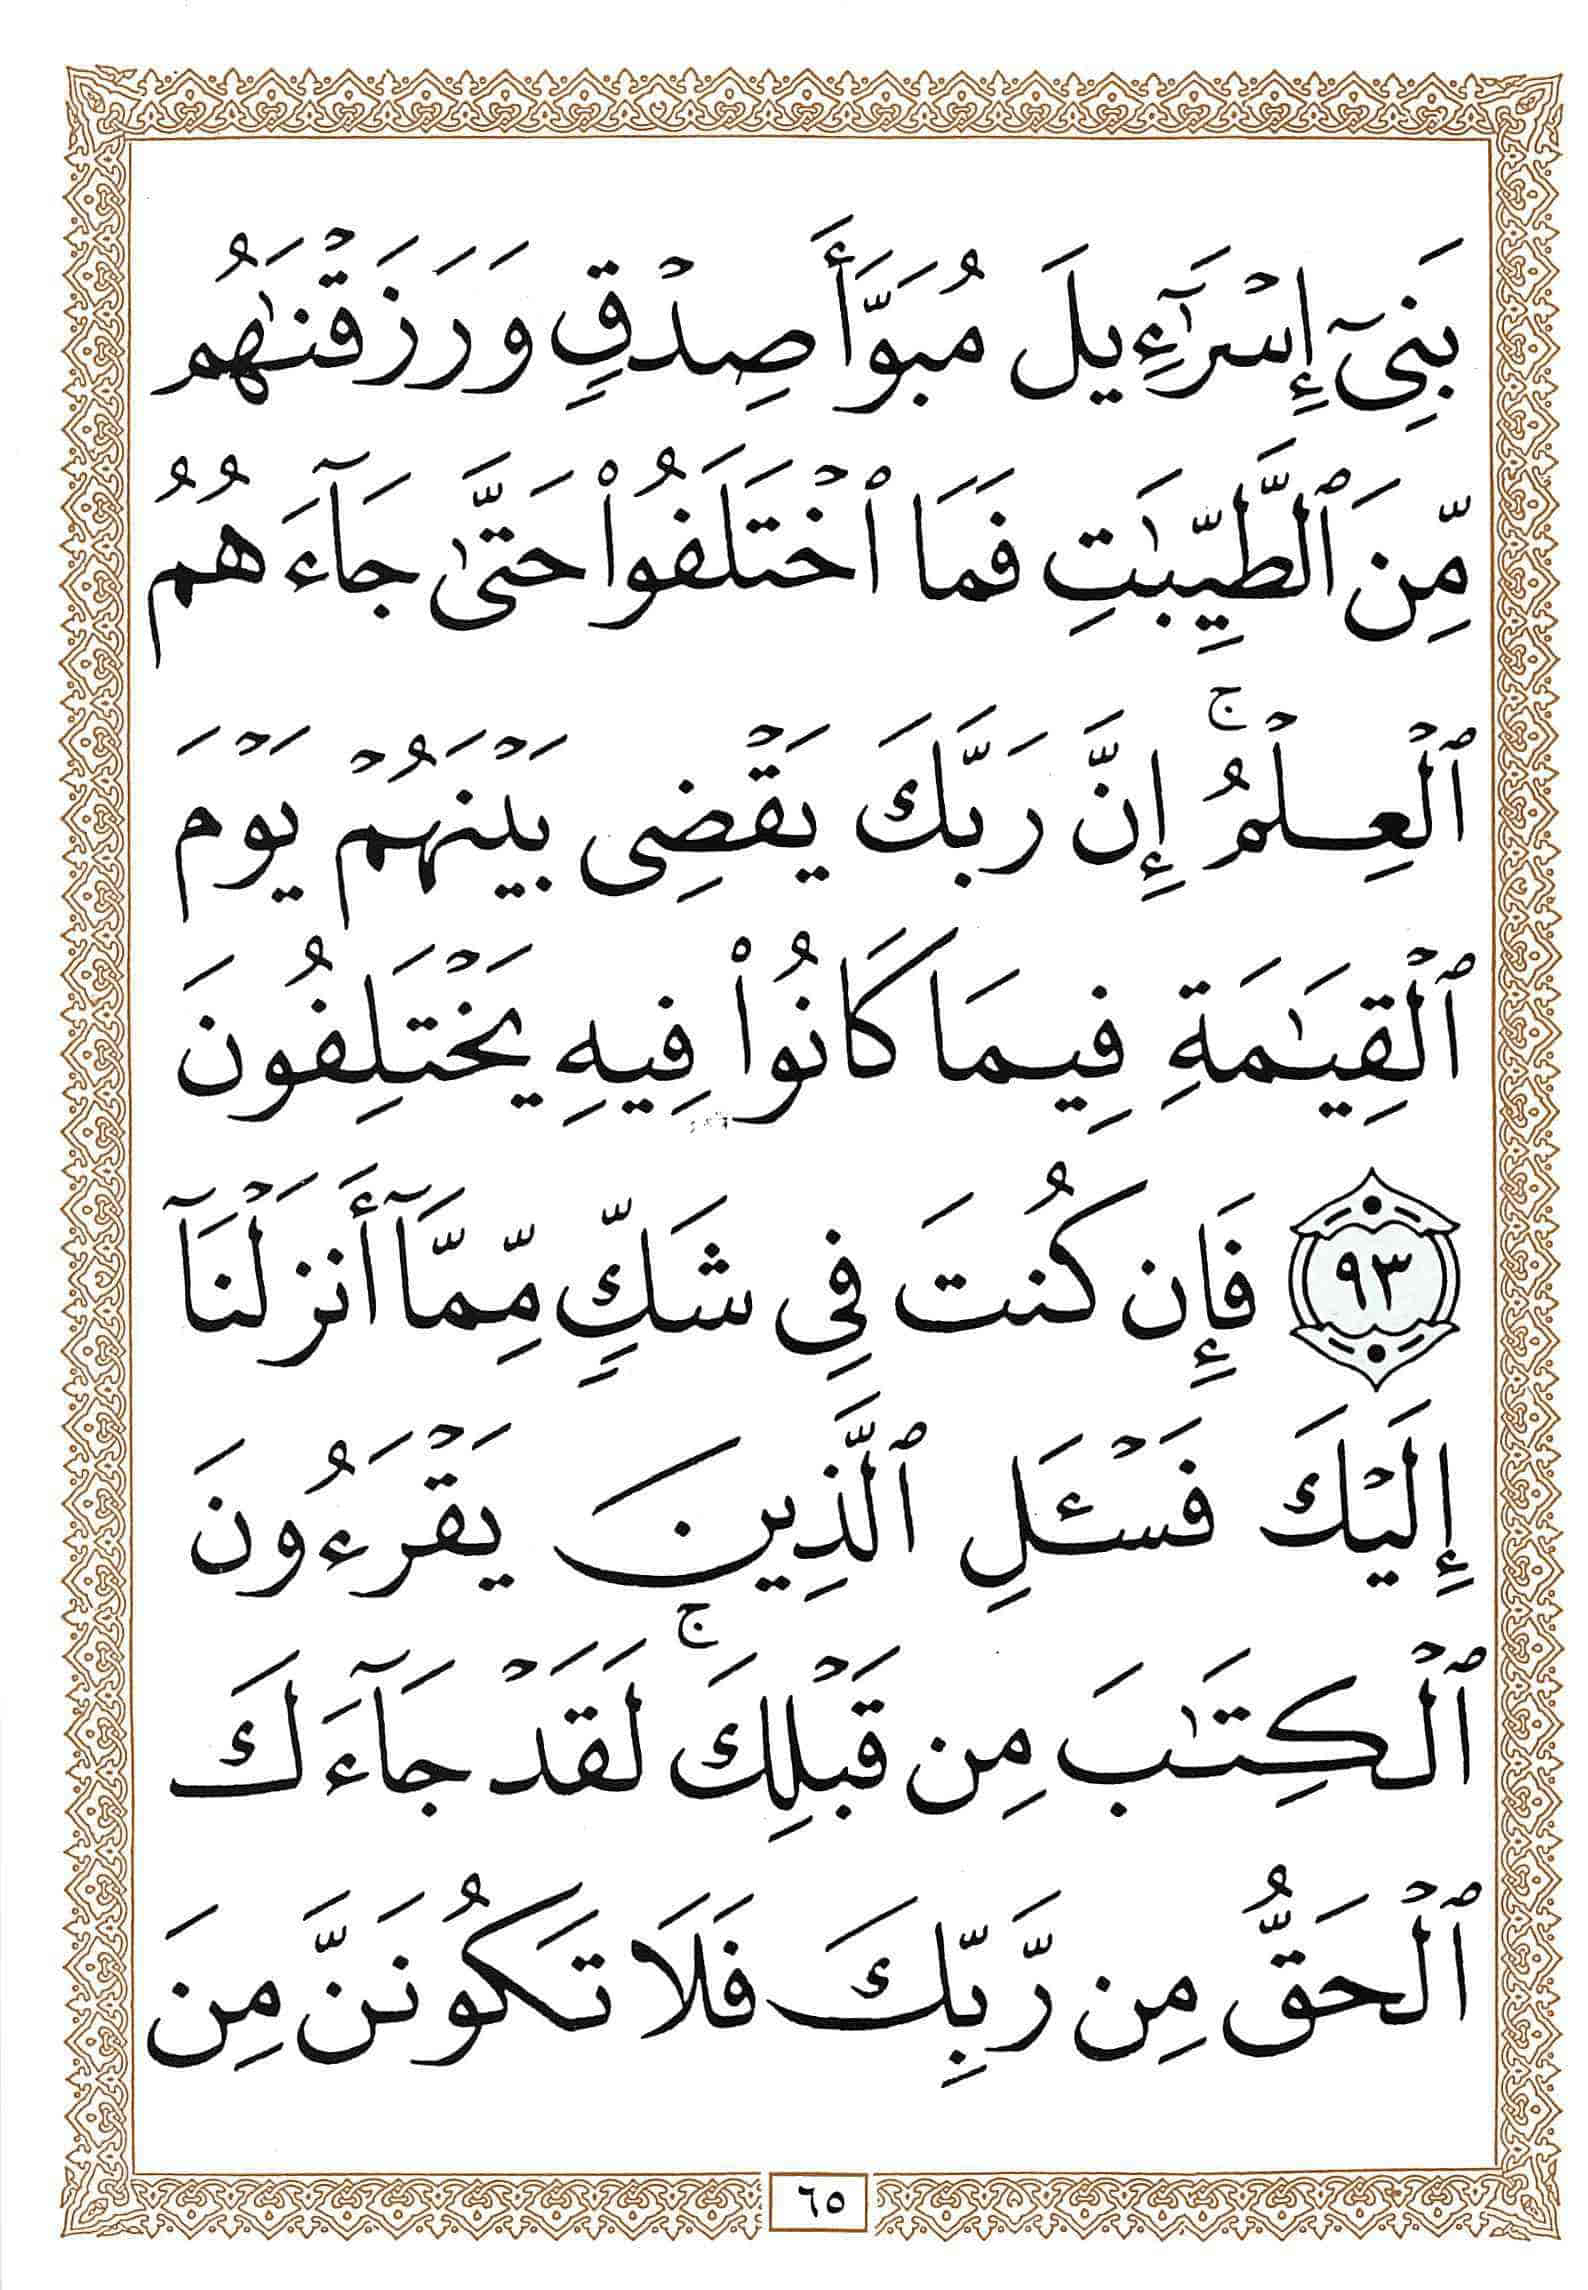 بَنِىٓ إِسْرَٰٓءِيلَ مُبَوَّأَ صِدْقٍ وَرَزَقْنَٰهُم
مِّنَ ٱلطَّيِّبَٰتِ فَمَا ٱخْتَلَفُوا۟ حَتَّىٰ جَآءَهُمُ
ٱلْعِلْمُ ۚ إِنَّ رَبَّكَ يَقْضِى بَيْنَهُمْ يَوْمَ
ٱلْقِيَٰمَةِ فِيمَا كَانُوا۟ فِيهِ يَخْتَلِفُونَ
٩٣ فَإِن كُنتَ فِى شَكٍّ مِّمَّآ أَنزَلْنَآ
إِلَيْكَ فَسْـَٔلِ ٱلَّذِينَ يَقْرَءُونَ
ٱلْكِتَٰبَ مِن قَبْلِكَ ۚ لَقَدْ جَآءَكَ
ٱلْحَقُّ مِن رَّبِّكَ فَلَا تَكُونَنَّ مِنَ
٦٥